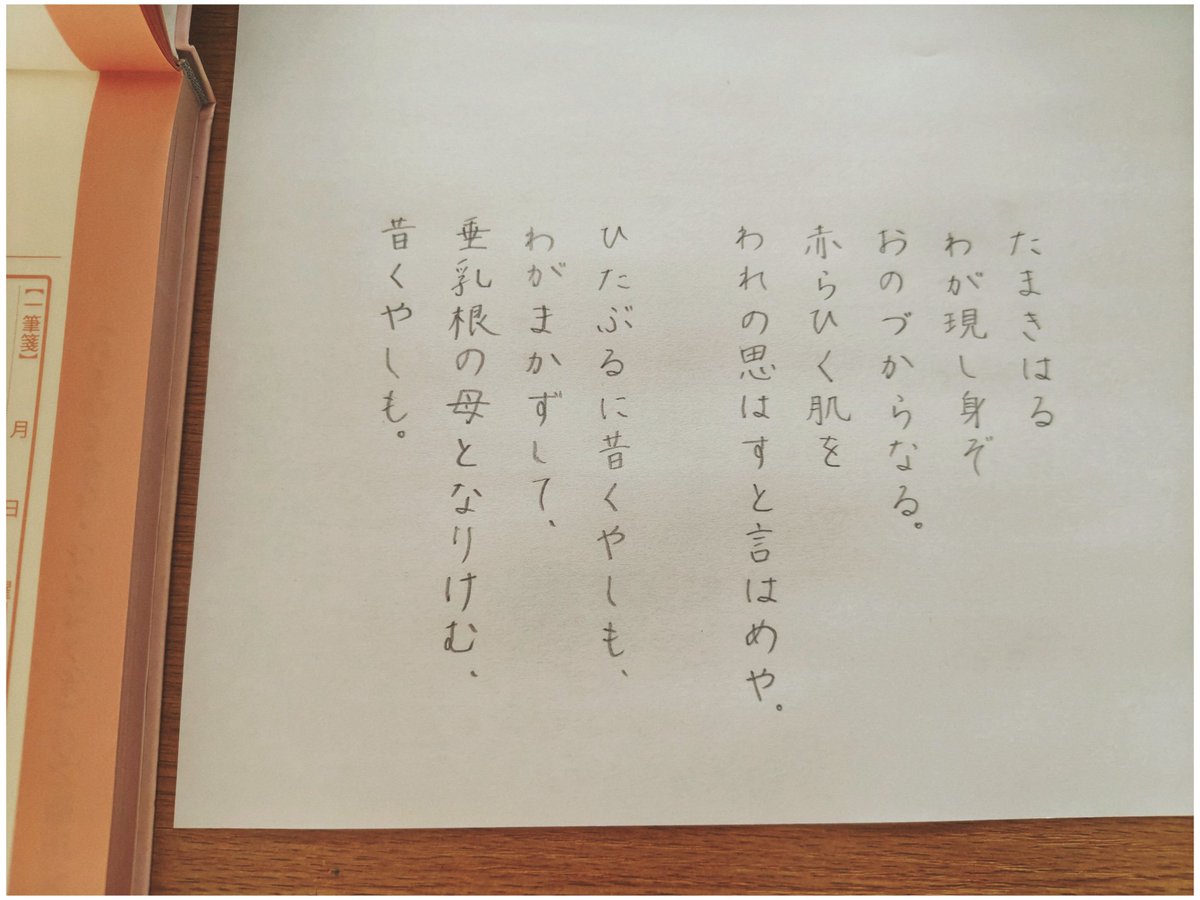 たまきはる
わが現し身ぞ
おのづからなる。
赤らひく肌を
われの思はすと言はめや。
ひたぶるに昔くやしも、
わがまかずして、
垂乳根の母となりけむ、
昔くやしも。
【一筆箋】
月
日